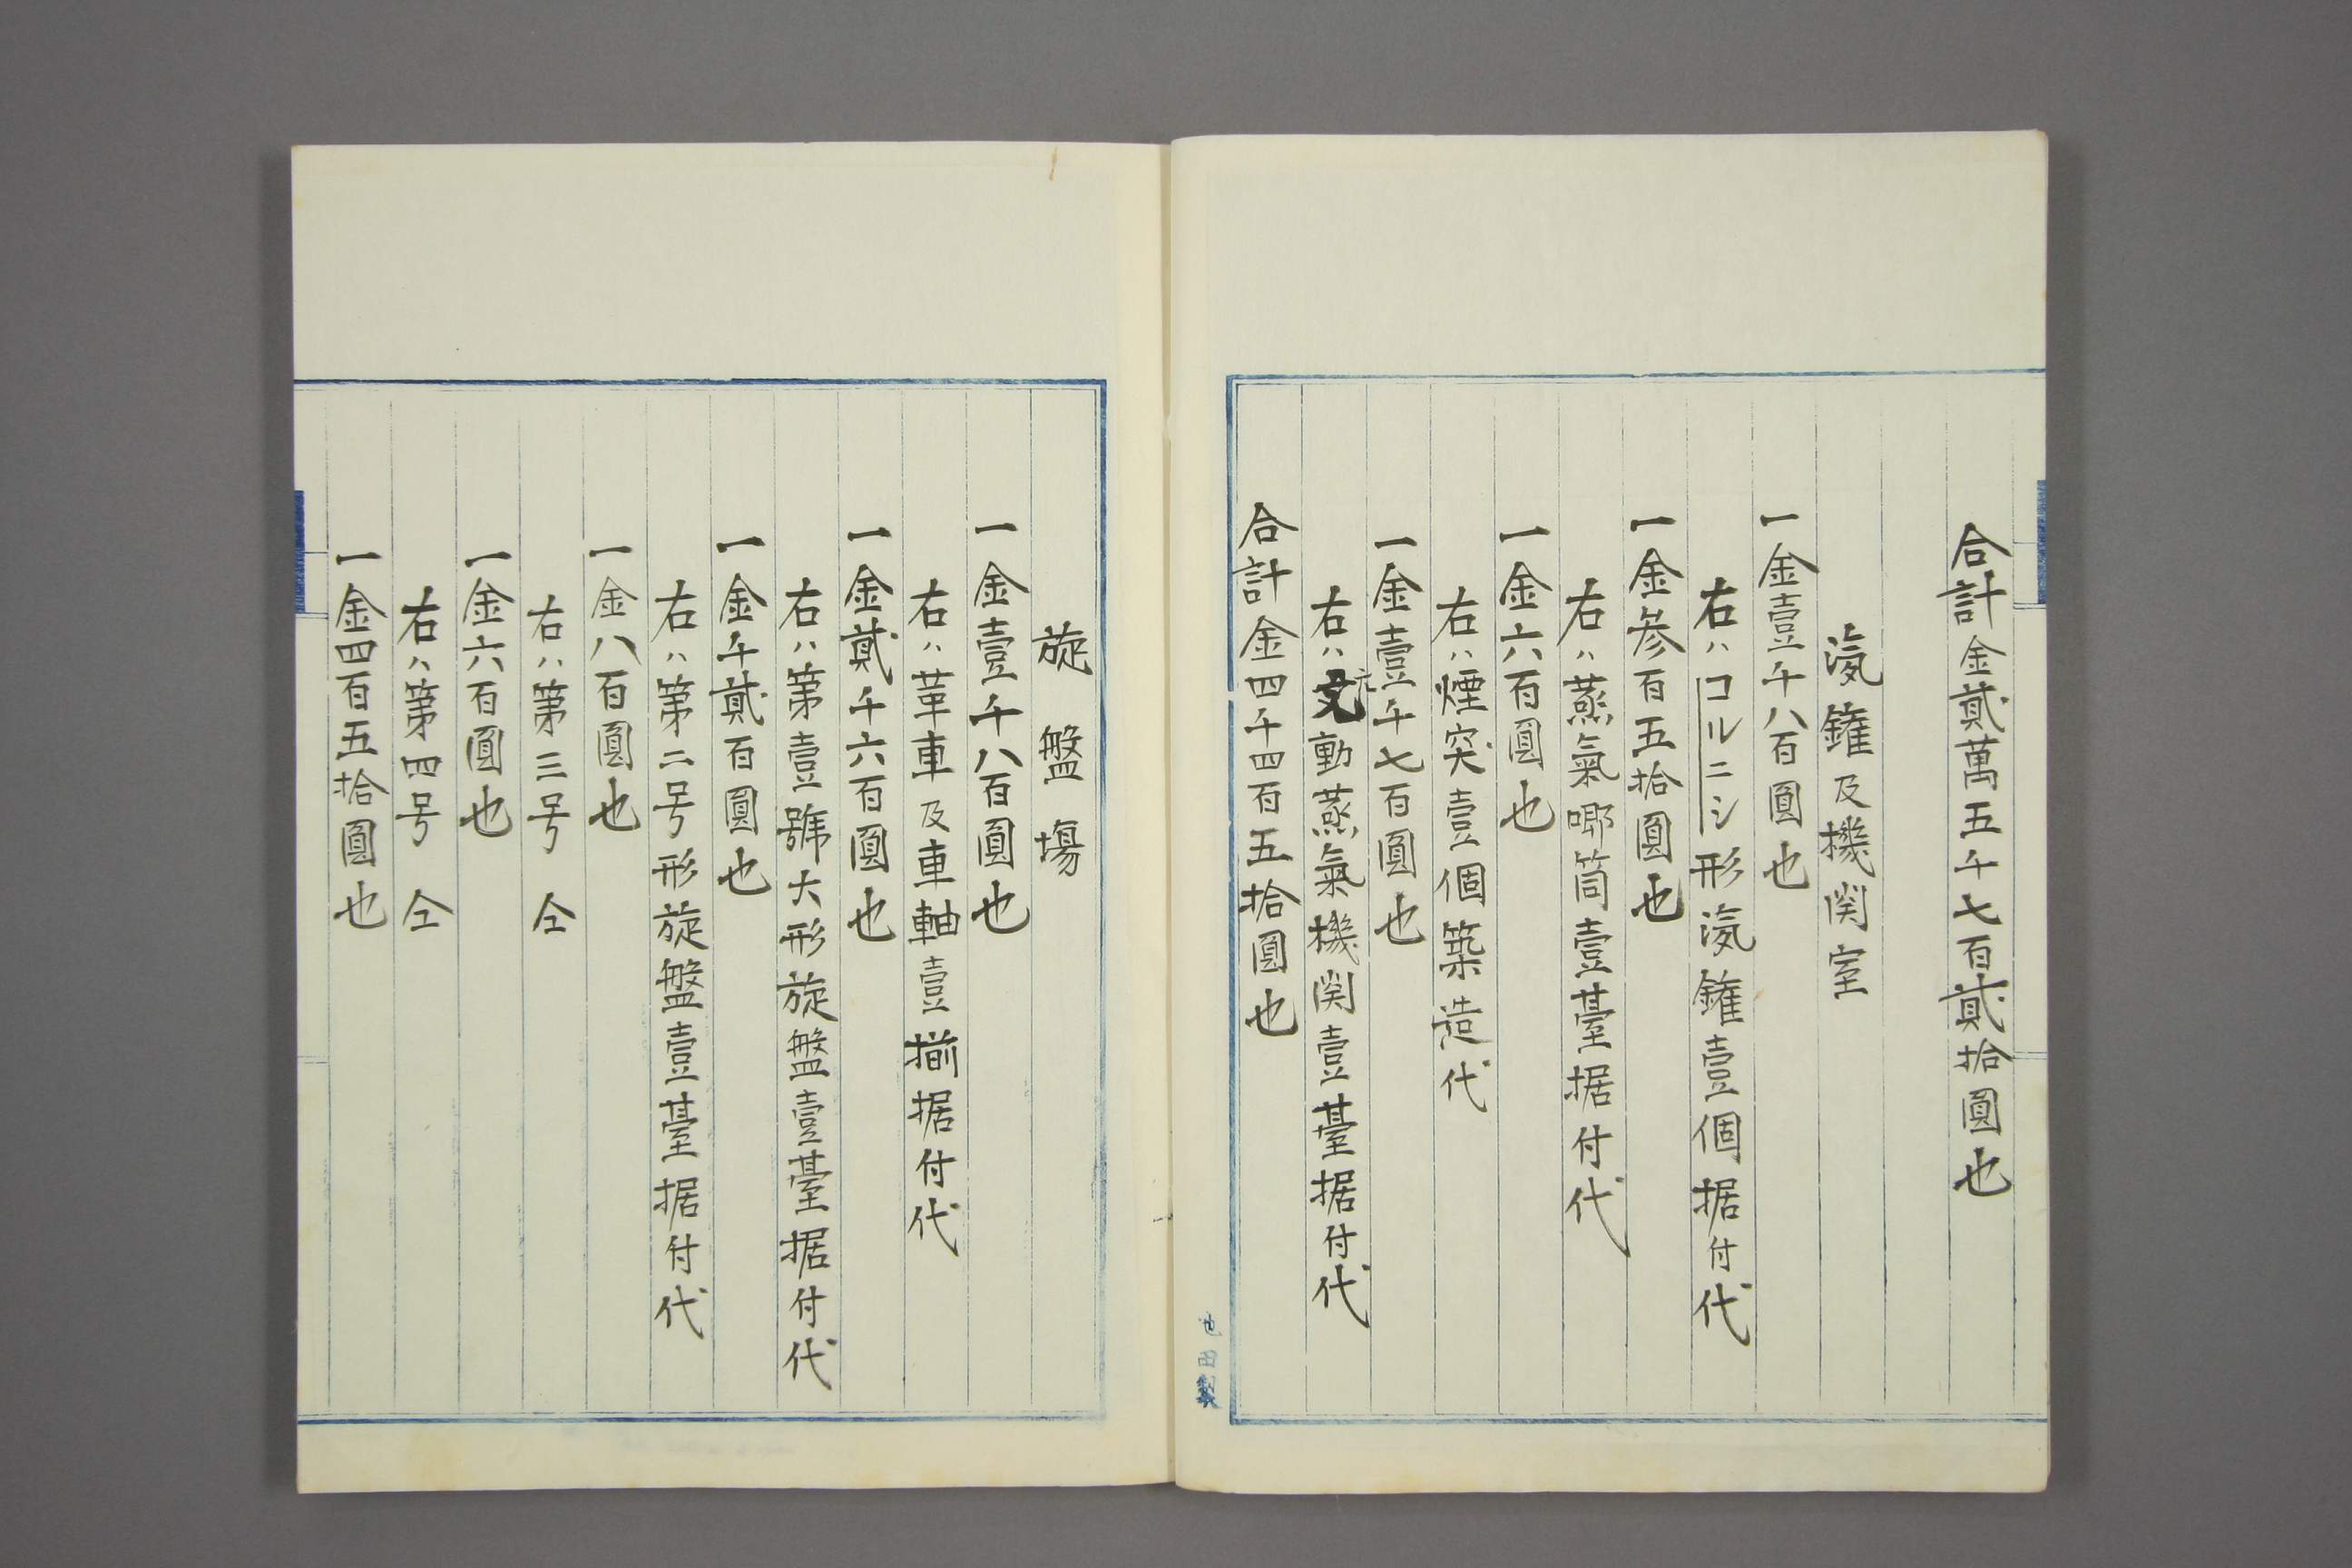 合計金貳萬五千七百貳拾圓也
滊鑵及機関室
一金壹千八百圓也
右ハコルニシ形滊鑵壹個据付代
一金参百五拾圓也
右ハ蒸氣喞筒壹䑓据付代
一金六百圓也
右ハ煙突壹個築造代
一金壹千七百圓也
右ハ動蒸氣機関壹䑓据付代
合計金四千四百五拾圓也
池田製
旋盤場
一金壹千八百圓也
右ハ革車及車軸壹揃据付代
一金貳千六百圓也
右ハ第壹號大形旋盤壹䑓据付代
一金千貳百圓也
右ハ第二号形旋盤壹䑓据付代
一金八百圓也
右ハ第三号仝
一金六百圓也
右ハ第四号仝
一金四百五拾圓也